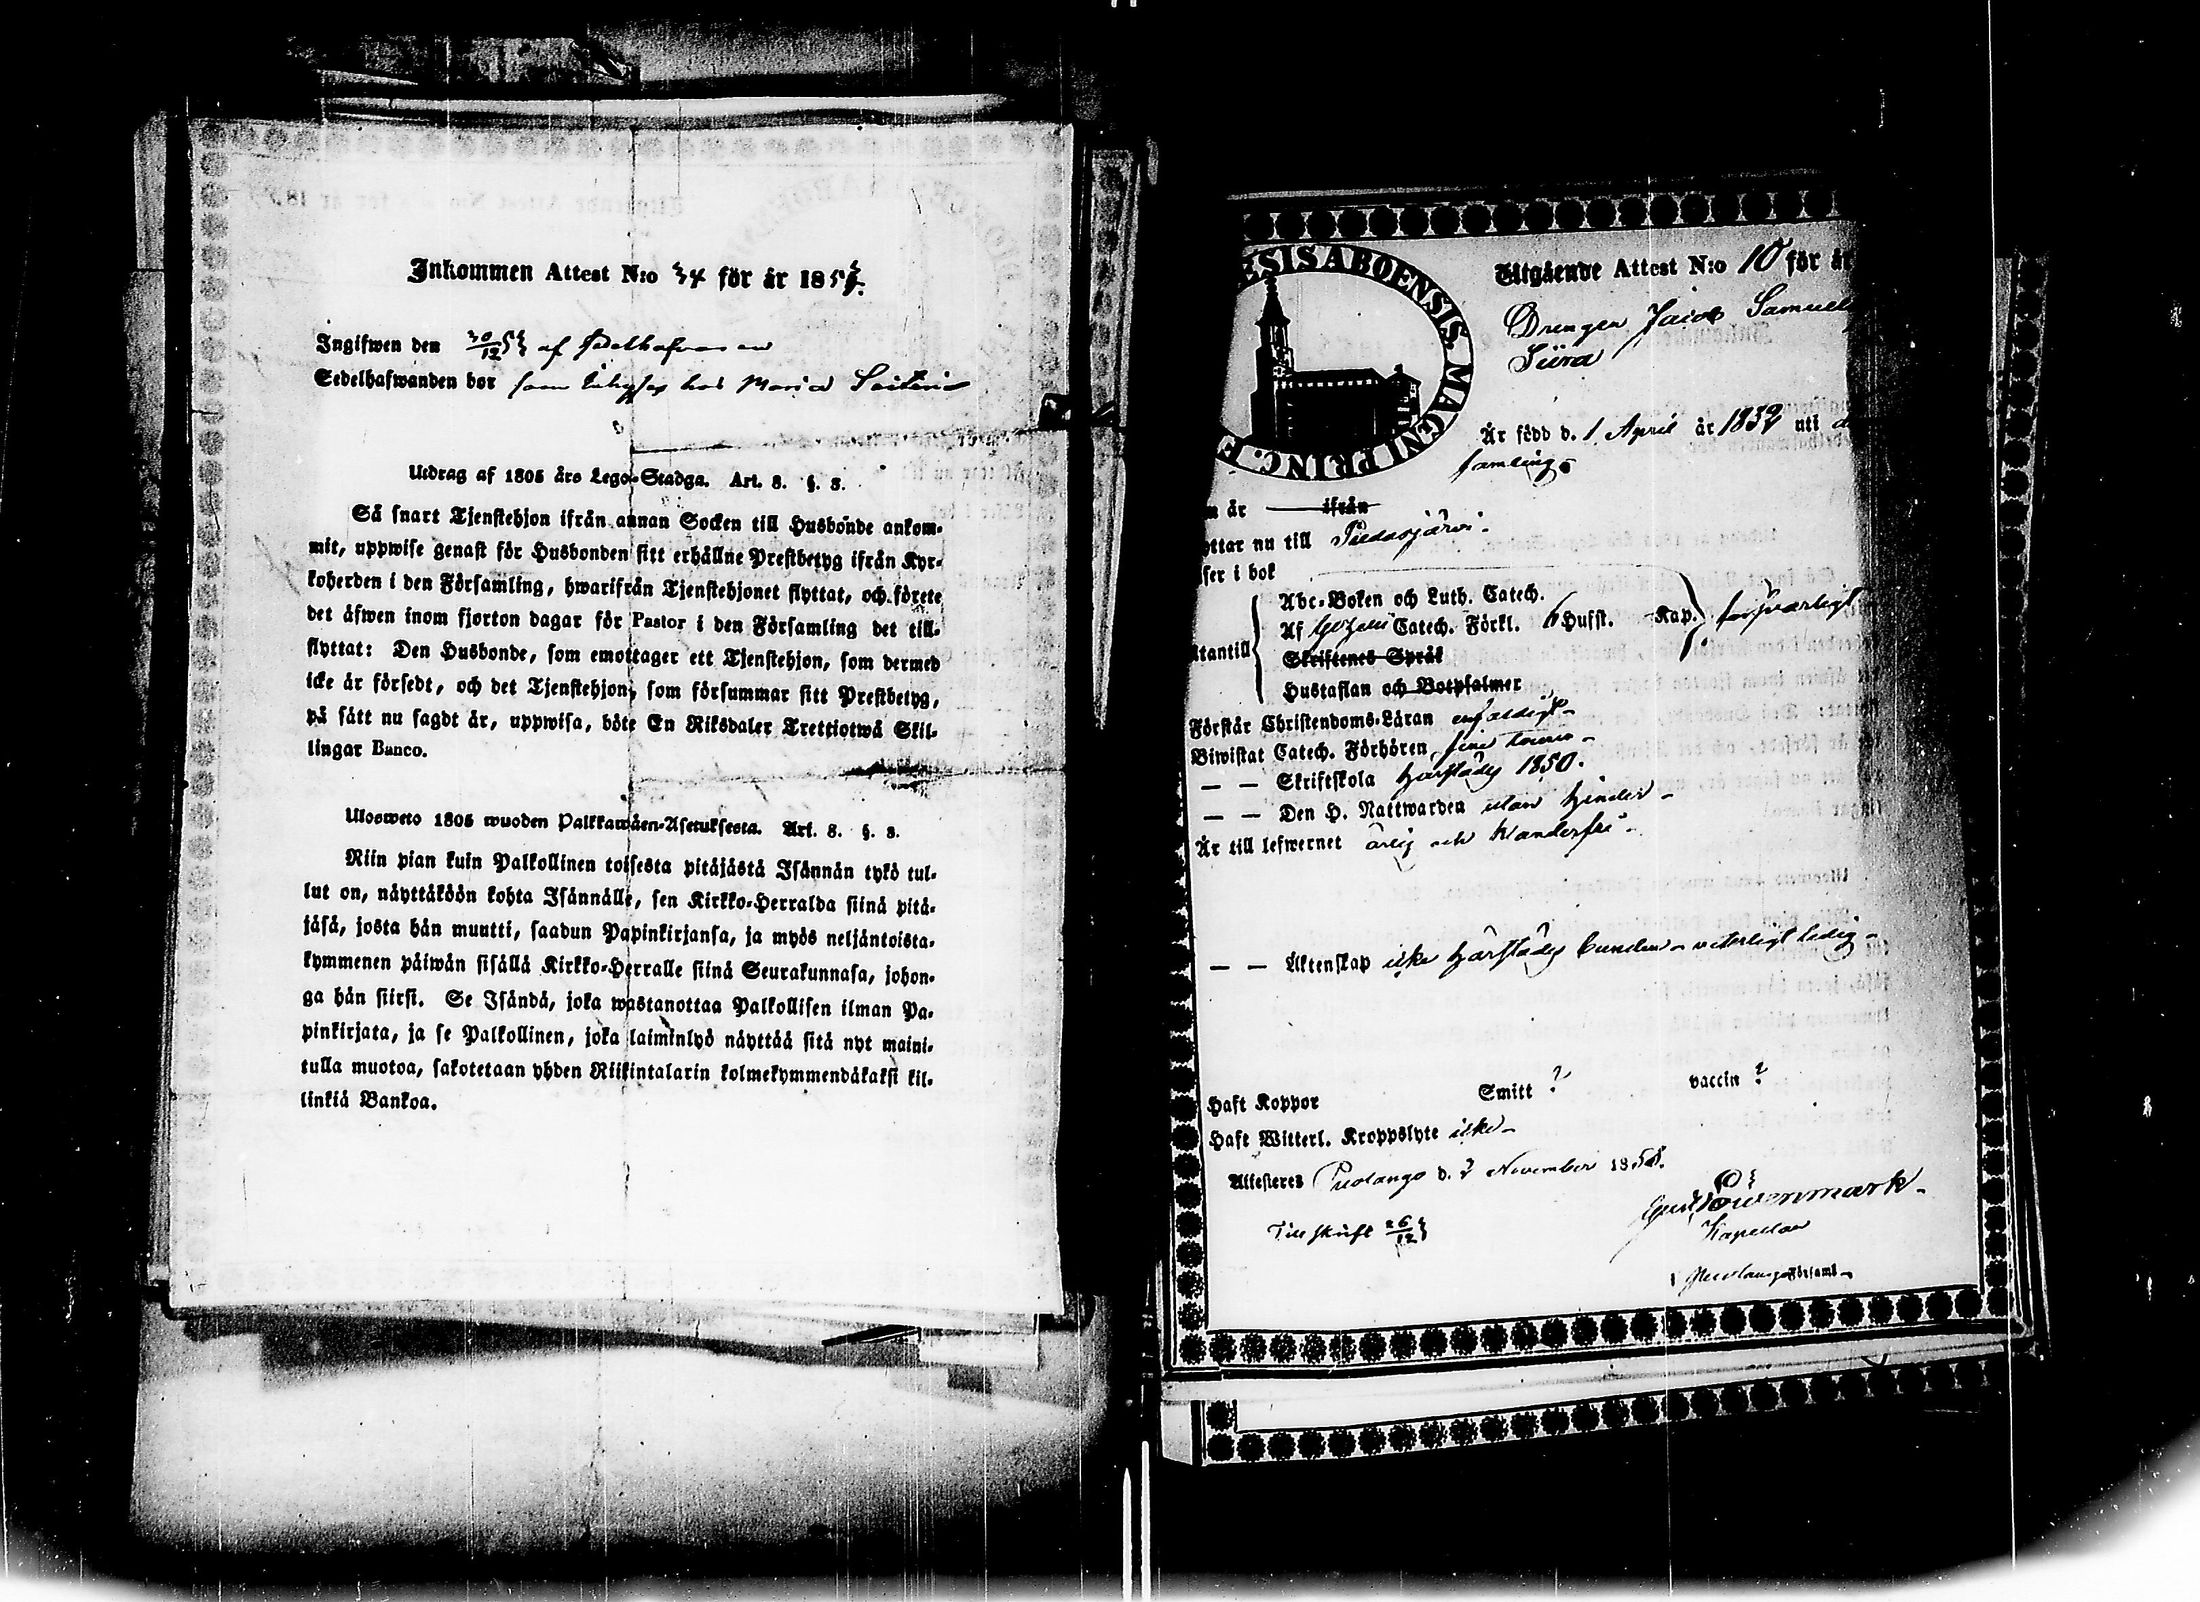 Inkommen Attest N:o 34 för år 185
Ingifwen den 30/12 53 af
Sedelhafwanden bor som hos Maria
Utdrag af 1805 års Lego-Stadga. Art. 8. §. 8.
Så snart Tjenstehjon ifrån annan Socken till Husbonde ankom-
mit, uppwise genast för Husbonden sitt erhållne Prestbetyg ifrån Kyr-
koherden i den Församling, hwarifrån Tjenstehjonet flyttat, och förete
det äfwen inom fjorton dagar för Pastor i den Församling det till-
flyttat: Den Husbonde, som emottager ett Tjenstehjon, som dermed
icke är försedt, och det Tjenstehjon, som försummar sitt Prestbetyg,
på sätt nu sagdt är, uppwisa, böte En Riksdaler Trettiotwå Skil-
lingar Banco.
Ulosweto 1805 wuoden Palkkawäen-Asetuksesta. Art. 8. §. 8.
Niin pian kuin Palkollinen toisesta pitäjästä Isännän tykö tul-
lut on, näyttäköön kohta Isännälle, sen Kirkko-Herralda siinä pitä-
jäsä, josta hän muutti, saadun Papinkirjansa, ja myös neljäntoista-
kymmenen päiwän sisällä Kirkko-Herralle siinä Seurakunnasa, johon-
ga hän siirsi. Se Isändä, joka wastanottaa Palkollisen ilman Pa-
pinkirjata, ja se Palkollinen, joka laiminlyö näyttää sitä nyt maini-
tulla muotoa, sakotetaan yhden Riikintalarin kolmekymmendäkaksi kil-
linkiä Bankoa.
ESIS ABOENSIS. MAGNI PRINC. F
Utgående Attest N:o 10 för år
Drengen Jacob Samuel
Siira
Är född d. 1 April år 1832 uti d
samling
n är ifrån
yttar nu till Pudasjärvi
ser i bok
Abc-Boken och Luth. Catech.
Af Gezelii Catech. Förkl. Husst. Kap. försvarligt
tantill
Skriftenes Språk
Hustaflan och Botpsalmer
Förstår Christendoms-Läran enfaldigt
Biwistat Catech. Förhören sine
— — Skriftskola härstädes 1850.
— — Den H. Nattwarden utan hinder
Är till lefwernet ärlig och klanderfri
— — Äktenskap icke härstädes bunden veterligt ledig
Haft Koppor Smitt ? vaccin ?
Haft Witterl. Kroppslyte icke
Attesteres Puolango d. 2 November 1853.
Löwenmark
Kapellan
Tillskrift 26/12 3
i Puolango Församl.